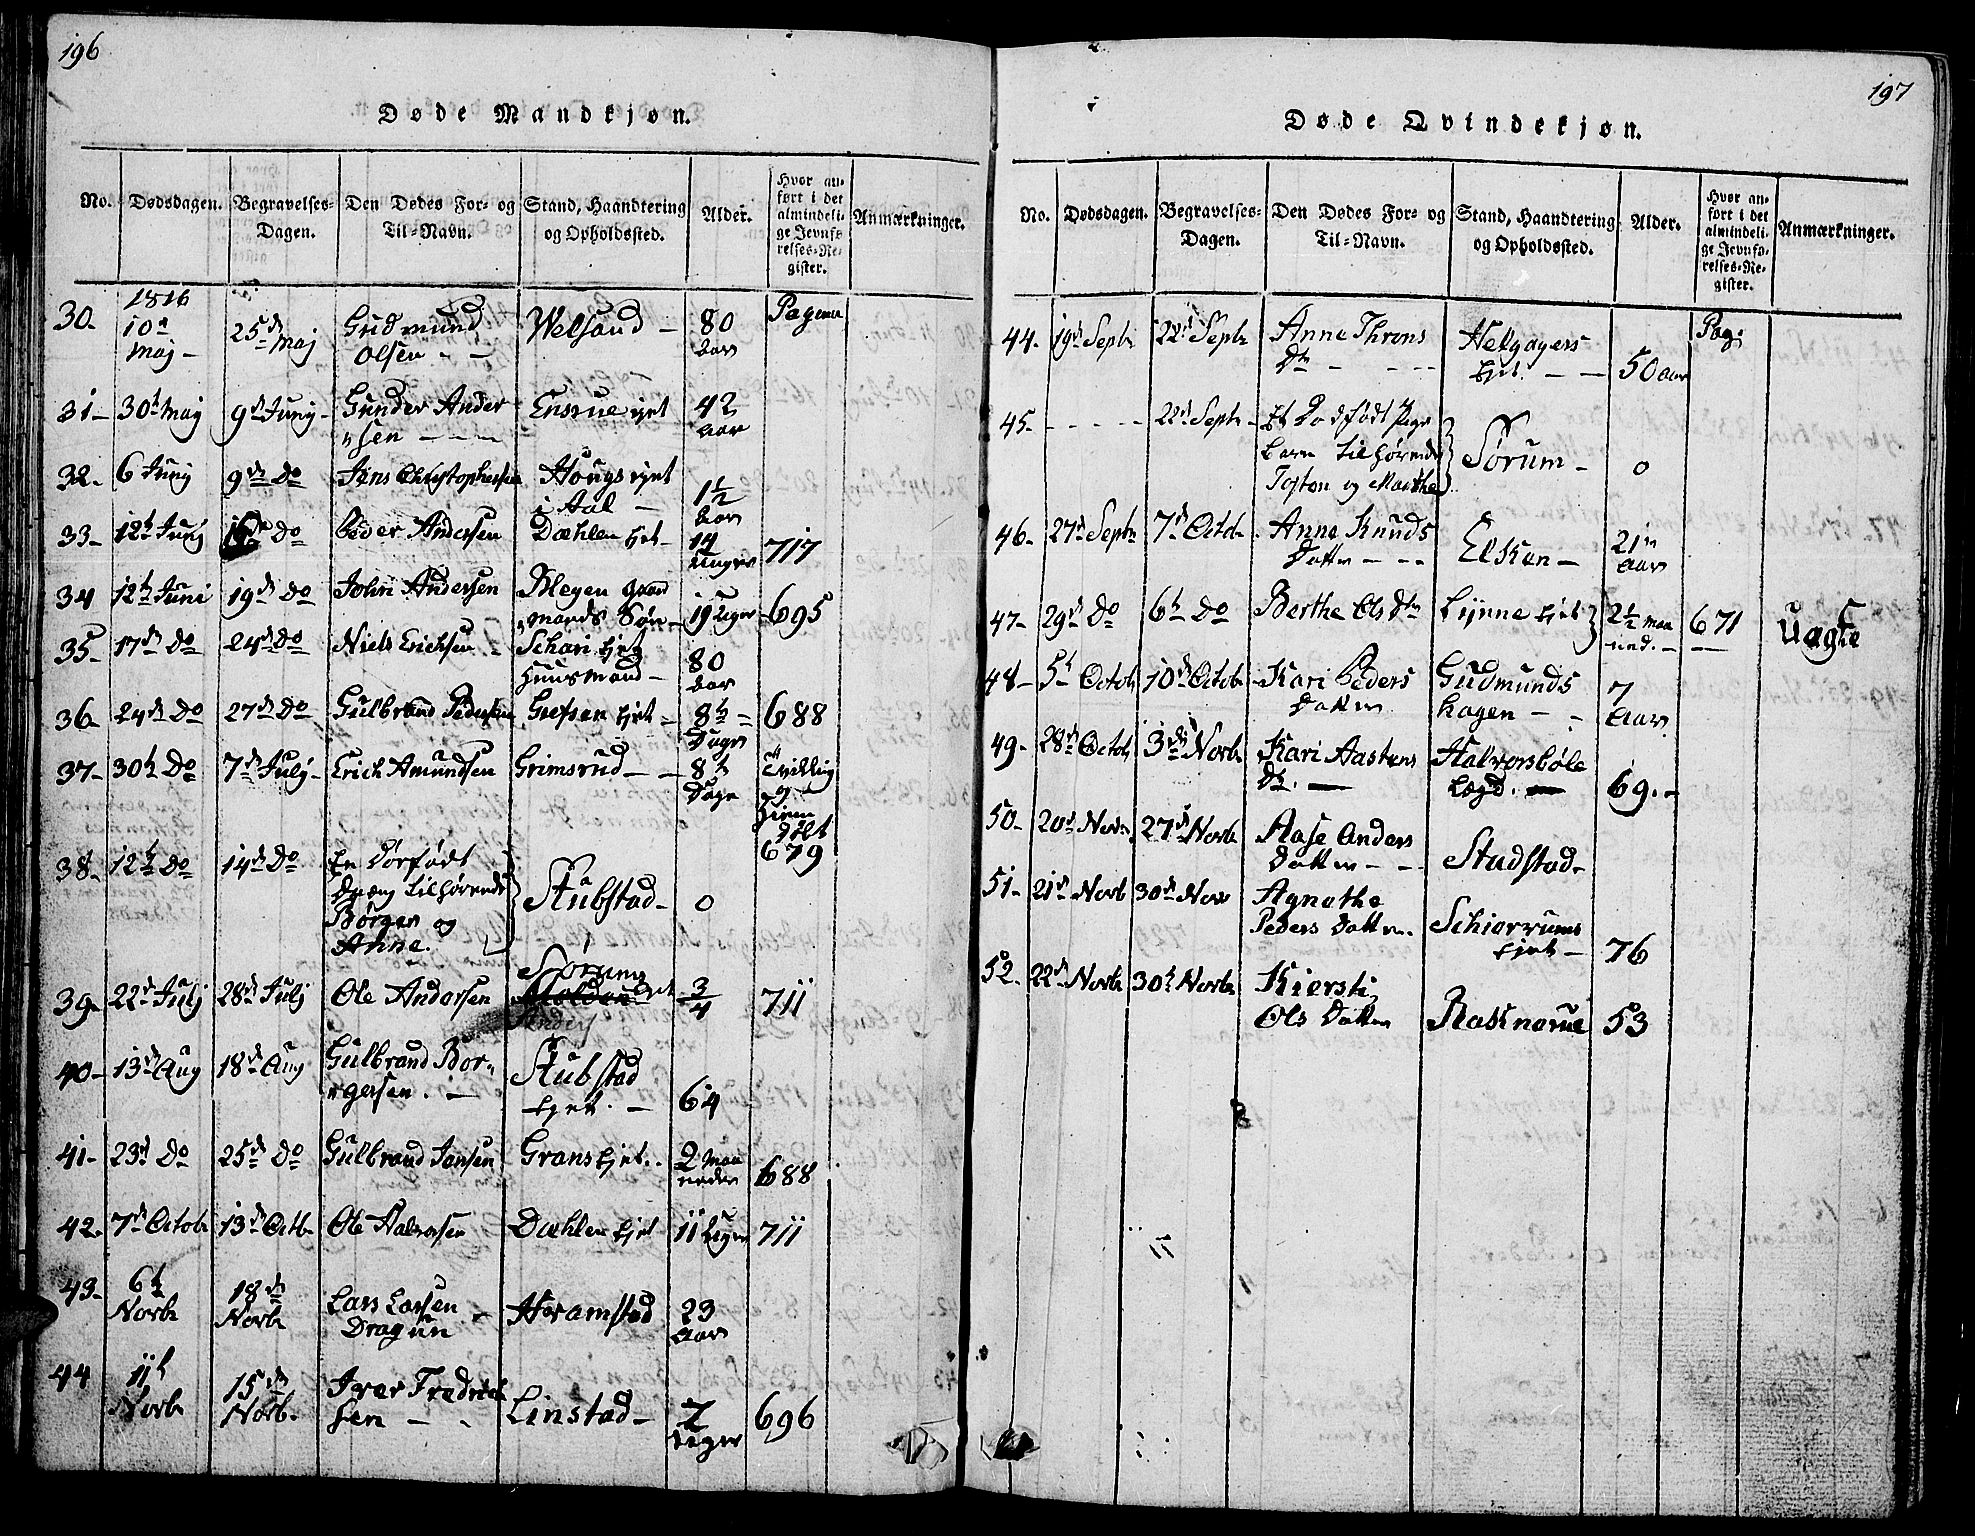 196
Døde Mandkjøn.
No. Dødsdagen. Begravelses-Dagen. Den Dødes For- og Til-Navn. Stand, Haandtering og Opholdssted. Alder. Hvor anført i det almindelige Jevnførelses-Register. Anmærkninger.
1816 Pagena
30. 10de Maj - 25de Maj Gudmund Olsen - - Welsand - 80 Aar
31 - 30t Maj 9de Junij - Gunder Ander
sen - - - Ensrue ejet 42 Aar
32. 6 Junij 9de Do Jens Christophersen Hougs ejet i Aal - 1½ Aar
33 - 12t Junij 16de Do Peder Andersen Dæhlen Ejet - 14 Uger 717
34 12t Juni 19de Do John Andersen Blegen Gaard
mands Søn - 19 Uger 695
35 - 17de Do 24de Do Niels Erichsen - Schari Ejet Huusmand - 80 Aar
36 - 24de Do 27de Do Gulbrand Pedersen Grefsen Ejet - 8t Dage 688
37 - 30t Do 7de Julij - Erich Amundsen Grimsrud - - 8t Dage Tvilling og Hjemmedøbt 679
38 - 12t Do 14de Do En Dørfødt
Dreng tilhørende
Børger og
Anne. Stubstad - 0
39 - 22de Julij 28de Julij Ole Andersen Sørums ejet 3/4 711
Anders
40 - 13de Aug 18de Aug Gulbrand Bør-
gersen. - Stubstad Ejet. - 64
41 - 23de Do 25de Do Gulbrand Jansen Grans Ejet. - 2 Maaneder 688
42. 7de Octob 13de Octb. Ole Halvorsen Dæhlen Ejet 11 Uger 711
43 - 6t Novb 18de Novb Lars Larsen -
Dragun Haramstad 23 Aar
44 11t Novb 15de Novb. Iver Fredrich
sen - - Linstad - 7 Uger 696
197
Døde Qvindekjøn.
No. Dødsdagen. Begravelses-Dagen. Den Dødes For- og Til-Navn. Stand, Haandtering og Opholdssted. Alder. Hvor anført i det almindelige Jevnførelses-Register. Anmærkninger.
Pag:
44. 19de Septb 22de Septb Anne Throns
Dtr - - - Helgagers Ejet. - - 50 Aar
45 - - - - - 22de Septr - Et Dødfødt Pige
Barn tilhørende
Tosten og Marthe Sørum - 0
46 - 27de Septb 7de Octob - Anne Knuds
Datter - - - Elsken - 21 Aar
47 - 29de Do 6t Do Berthe Ols Dtr Lynne Ejet 2½ Maaned. - 671 Uagte
48 - 5t Octob 10de Octob - Kari Peders
Datter Gudmunds
hagen - - 7 Aar
49 - 28de Octob 3de Novb Kari Aastens
Dtr. - Halvorsbøle
Lægd. - 69. -
50 - 20de Novb 27de Novb Aase Anders
Datter - - Studstad -
51 - 21de Novb 30de Nov Agnethe
Peders Datter. Schiærrums
Ejet - 76
52. 22de Novb 30t Novb Kiersti
Ols Datter Rasknerue 53